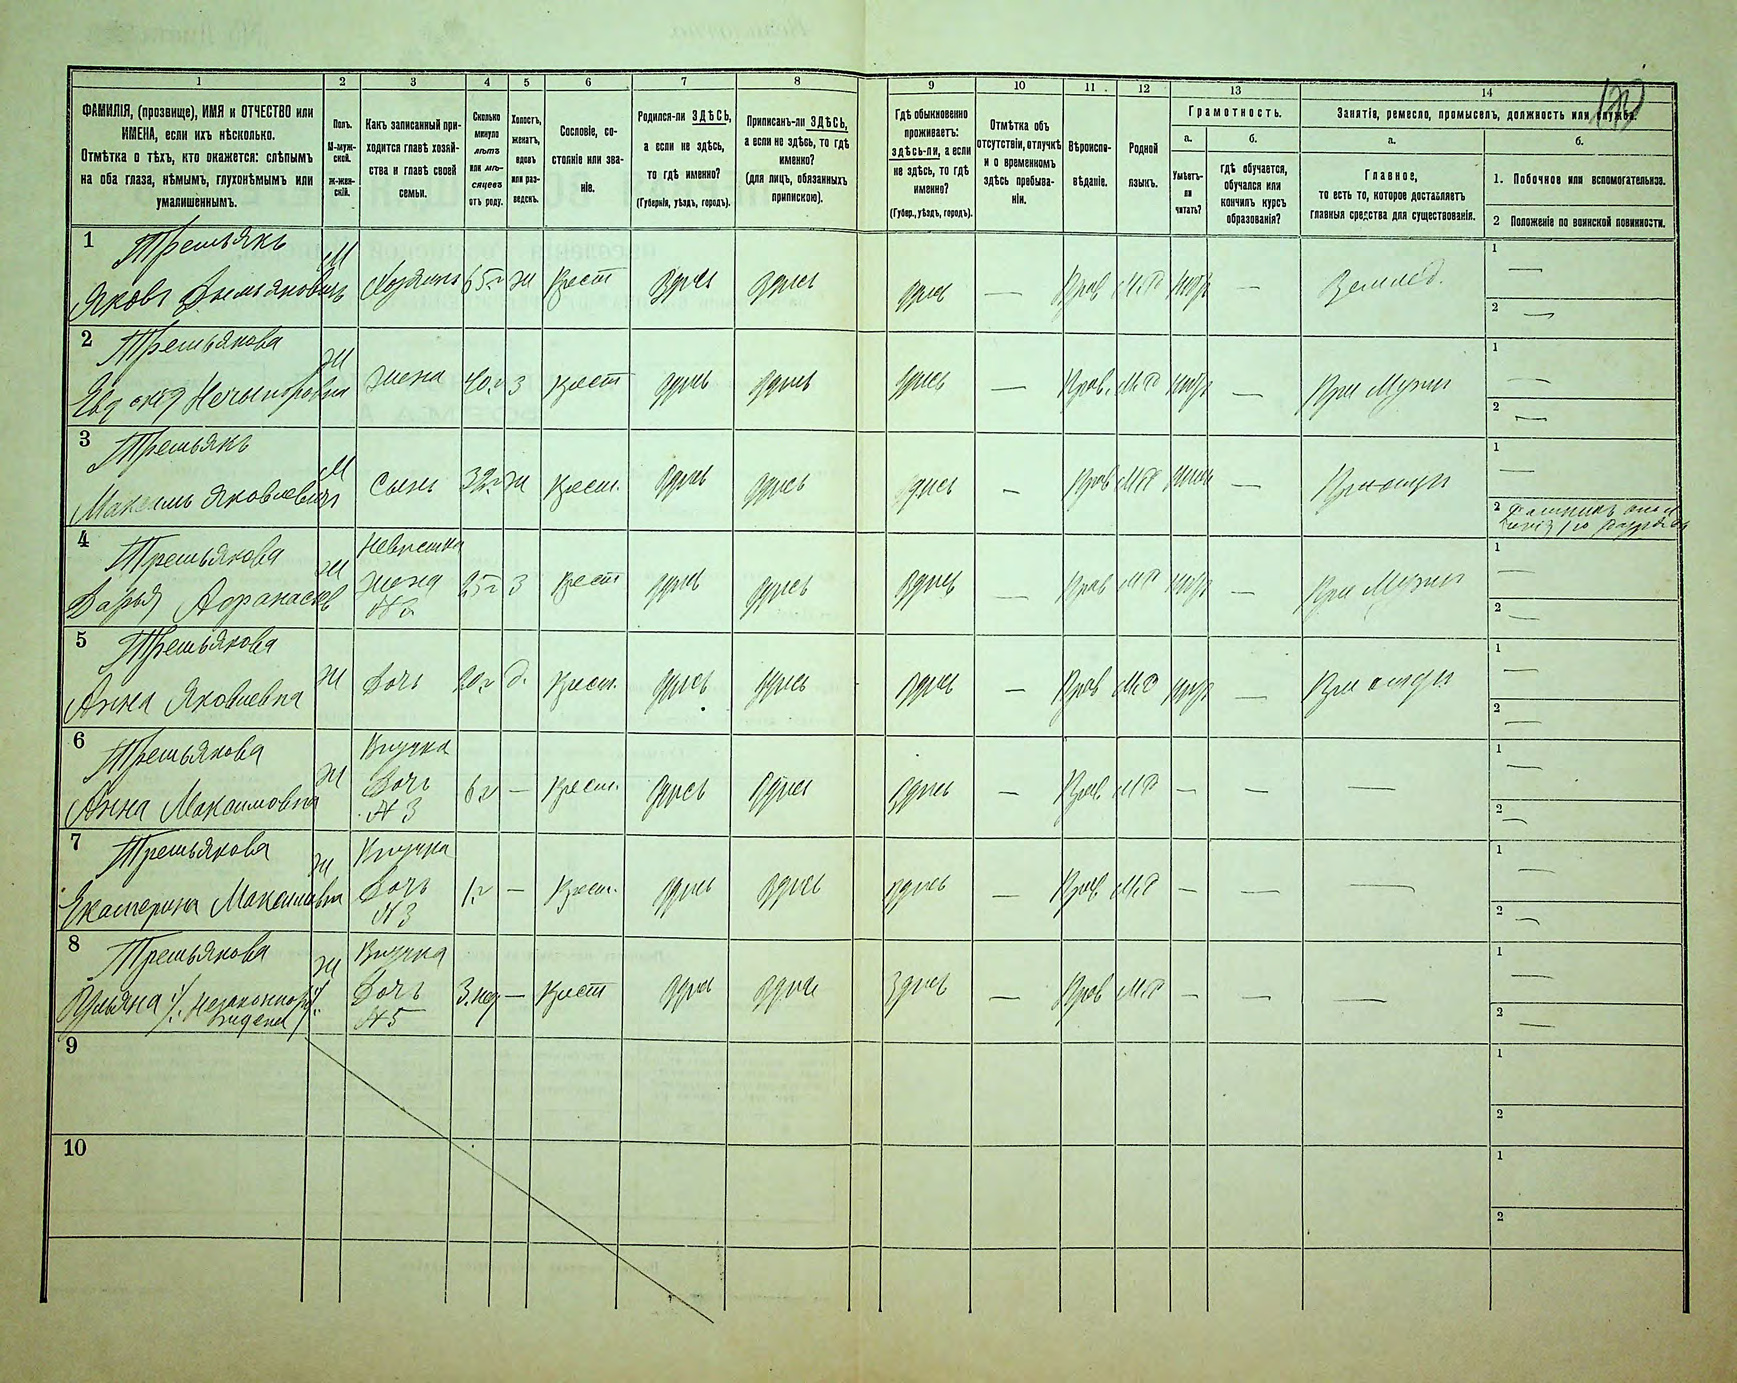 1 2 3 4 5 6 7 8 9 10 11 12 13 14
ФАМИЛІЯ, (прозвище), ИМЯ и ОТЧЕСТВО или
ИМЕНА, если ихъ нѣсколько.
Отмѣтка о тѣхъ, кто окажется: слѣпымъ
на оба глаза, нѣмымъ, глухонѣмымъ или
умалишеннымъ.
Полъ.
М-муж-
ской.
ж-жен-
скій.
Какъ записанный при-
ходится главѣ хозяй-
ства и главѣ своей
семьи.
Сколько
минуло
лѣтъ
или мѣ-
сяцевъ
отъ роду.
Холостъ,
женатъ,
вдовъ
или раз-
веденъ.
Сословіе, со-
стояніе или зва-
ніе.
Родился-ли ЗДѢСЬ,
а если не здѣсь,
то гдѣ именно?
(Губернія, уѣздъ, городъ).
Приписанъ-ли ЗДѢСЬ,
а если не здѣсь, то гдѣ
именно?
(для лицъ, обязанныхъ
припискою).
Гдѣ обыкновенно
проживаетъ:
здѣсь-ли, а если
не здѣсь, то гдѣ
именно?
(Губер., уѣздъ, городъ).
Отмѣтка объ
отсутствіи, отлучкѣ
и о временномъ
здѣсь пребыва-
ніи.
Вѣроиспо-
вѣданіе.
Родной
языкъ.
Грамотность.
а.
Умѣетъ-
ли
читать?
б.
гдѣ обучается,
обучался или
кончилъ курсъ
образованія?
Занятія, ремесло, промыселъ, должность или служба.
а.
Главное,
то есть то, которое доставляетъ
главныя средства для существованія.
б.
1. Побочное или вспомогательное.
2 Положеніе по воинской повинности.
1 Третьякъ
Яковъ Демьяновичъ М Хозяинъ 65 г ж Крест здѣсь здѣсь здѣсь — Прав М.Р нѣтъ — Землед. 1 — 2 —
2 Третьякова
Евдокія Нечыпоровна Ж Жена 40 г з Крест здѣсь здѣсь здѣсь — Прав. М.Р нѣтъ — При мужи 1 — 2 —
3 Третьякъ
Максимъ Яковлевичъ М Сынъ 32 г ж Крест. здѣсь здѣсь здѣсь — Прав М.Р нѣтъ — При отцы 1 — 2
4 Третьякова
Дарья Афанасіев Ж Невѣстка
Жена
№ 3 25 г з Крест здѣсь здѣсь здѣсь — Прав М.Р нѣтъ — При мужи 1 — 2 —
5 Третьякова
Анна Яковлевна Ж Дочь 20 г д. Крест. здѣсь здѣсь здѣсь — Прав М.Р нѣтъ — При отцы 1 — 2 —
6 Третьякова
Анна Максимовна Ж Внучка
Дочь
№ 3 6 г — Крест. здѣсь здѣсь здѣсь — Прав. М.Р — — — 1 — 2 —
7 Третьякова
Екатерина Максимовна Ж Внучка
Дочь
№ 3 1 г — Крест. здѣсь здѣсь здѣсь — Прав. М.Р — — — 1 — 2 —
8 Третьякова
Ульяна Ж Внучка
Дочь
№ 5 3. нед — Крест здѣсь здѣсь здѣсь — Прав М.Р — — — 1 — 2 —
9 1 2
10 1 2